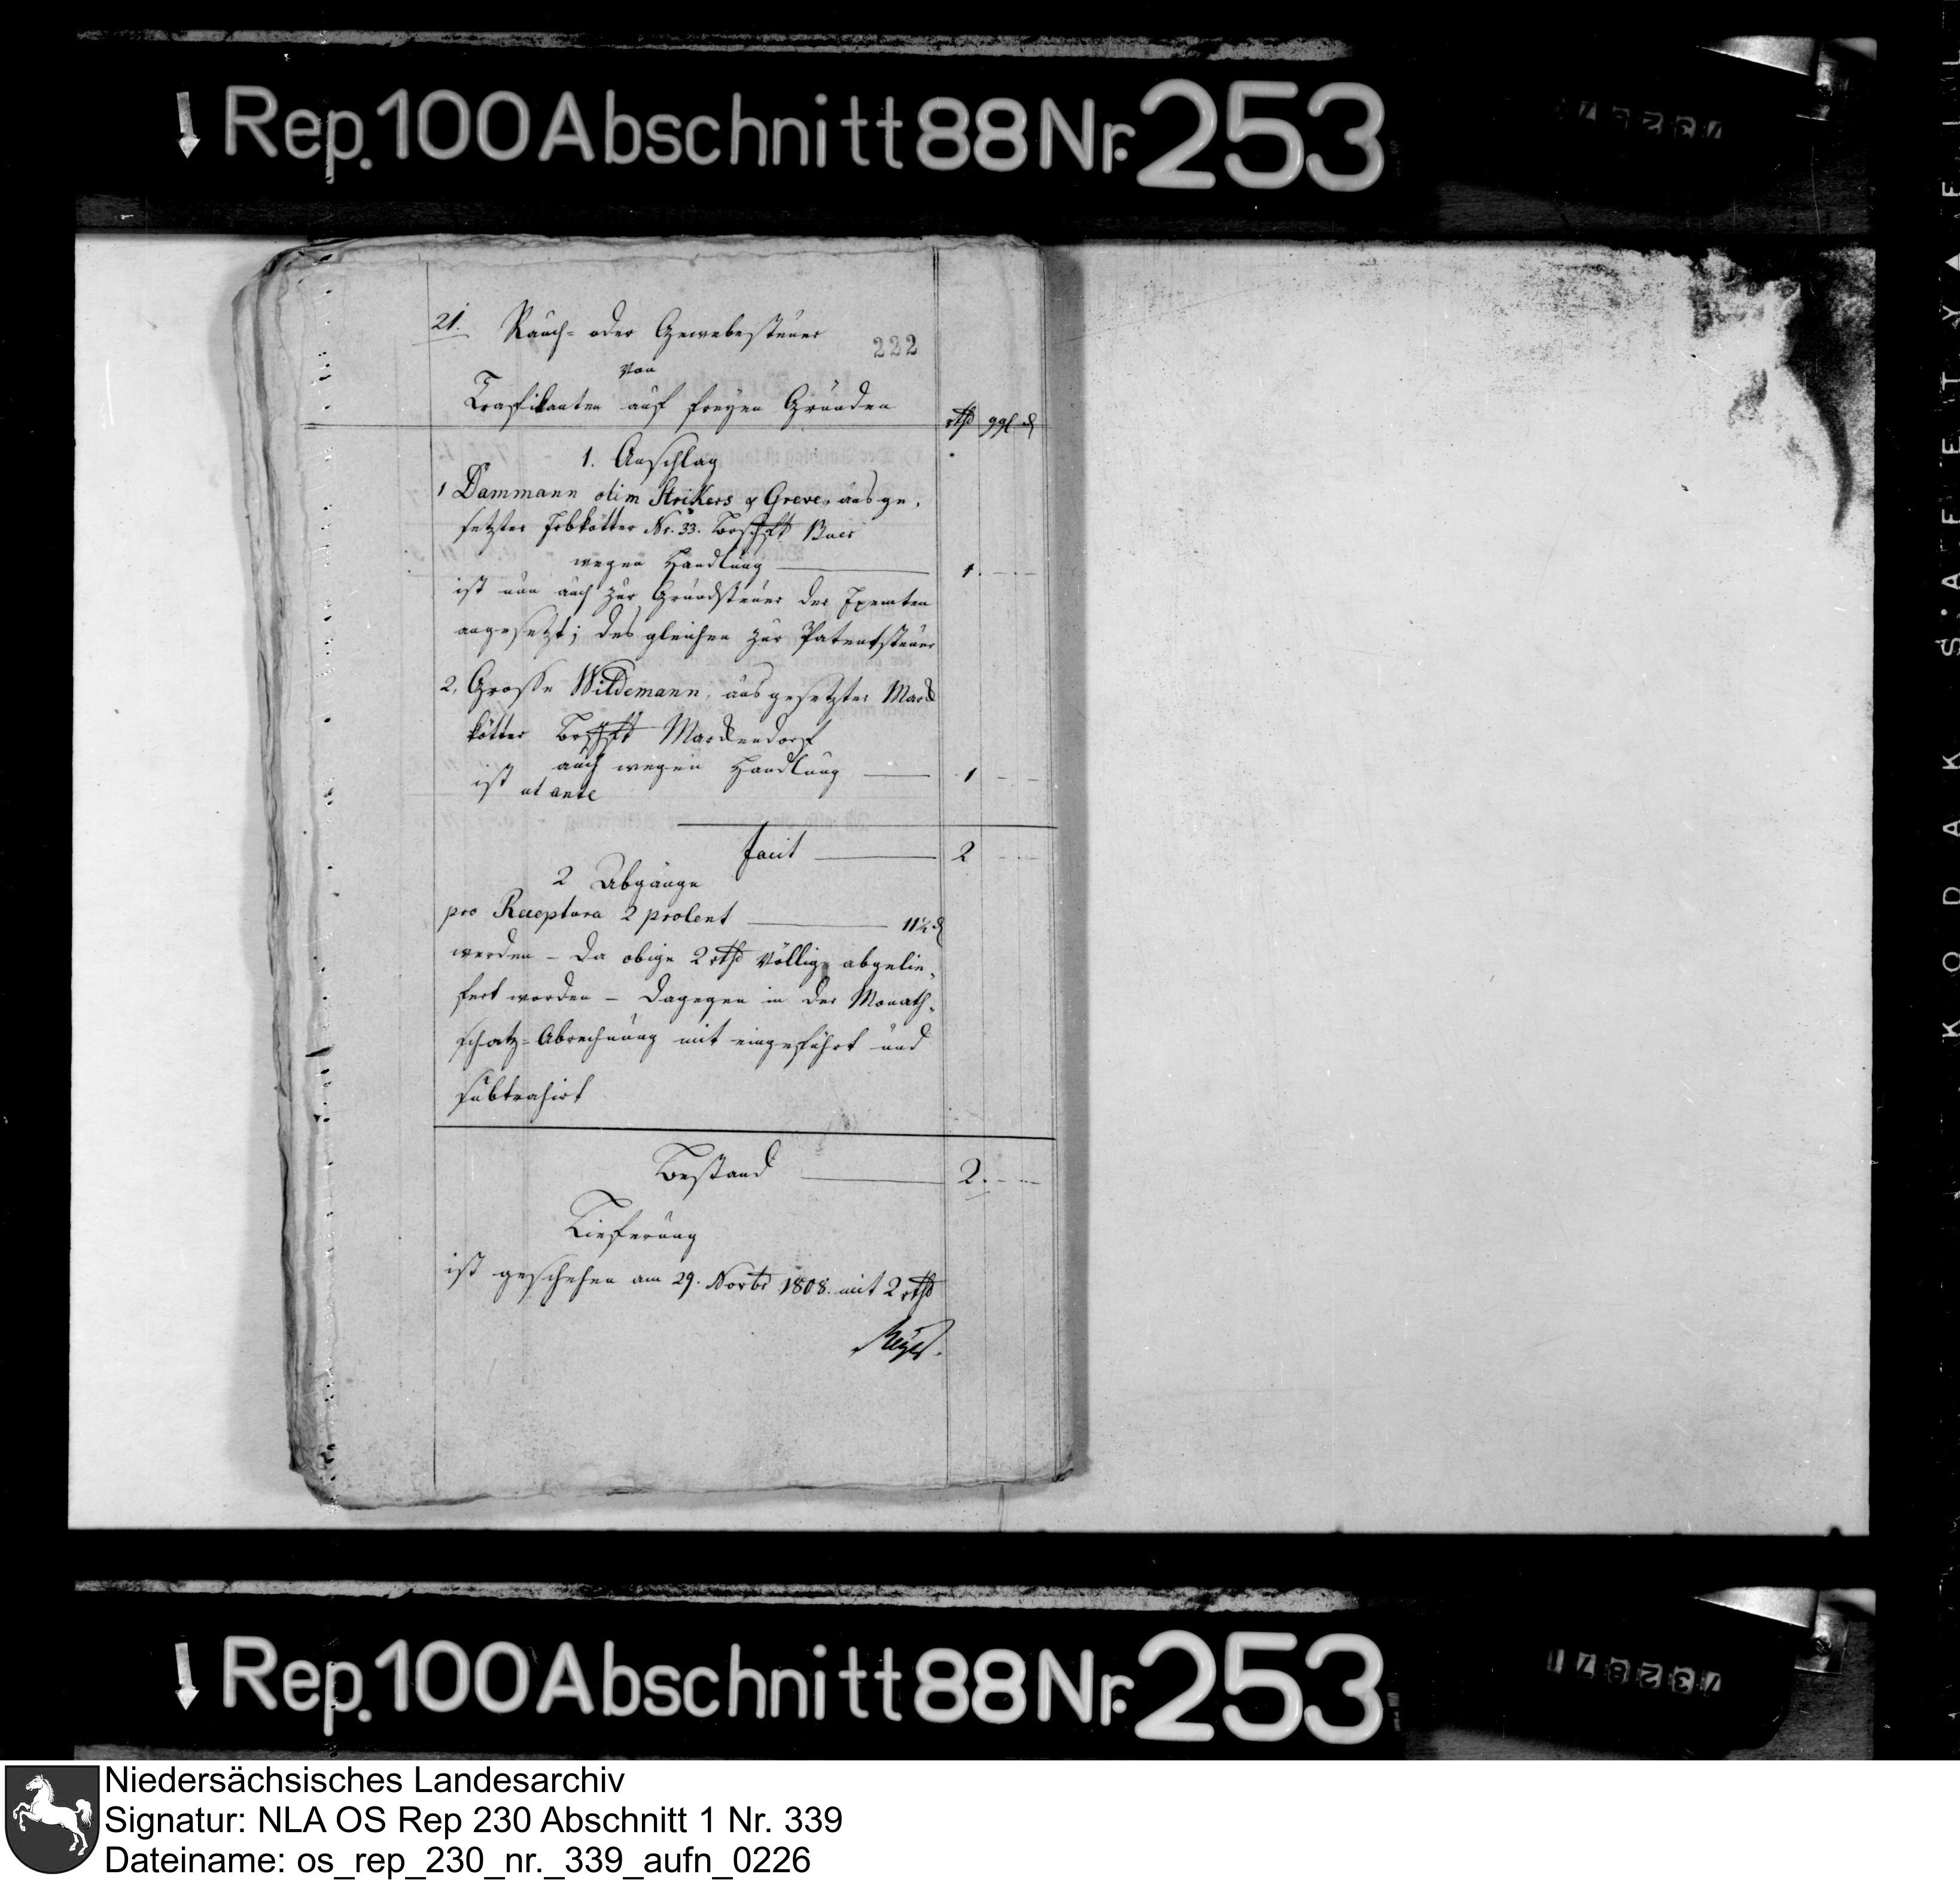 Rep. 100 Abschnitt 88 Nr. 253
21. Rauch- oder Gewerbesteuer
222
von
Trafikanten auf freyen Gründen
rthl ggl d
1. Anschlag
1 Dammann olim Strikers & Greve, ausge-
setzter Erbkötter Nr. 33. Brschft Buer
wegen Handlung — 1. - -
ist nun auch zur Grundsteuer der Exemten
angesetzt; des gleichen zur Patentsteuer
2. Grosse Wildemann, ausgesetzter Mark
kötter Brschft Markendorf
auch wegen Handlung — 1 - -
ist ut ante
facit — 2 - -
2 Abgänge
pro Receptura 2 proCent — 11½ d
werden – da obige 2 rthl völlig abgelie-
fert worden – dagegen in der Monath-
schatz-Abrechnung mit eingeführt und
subtrahirt
Bestand — 2. - -
Lieferung
ist geschehen am 29. Novbr 1808. mit 2 rthl
Rep. 100 Abschnitt 88 Nr. 253
KODAK SAFETY
Niedersächsisches Landesarchiv
Signatur: NLA OS Rep 230 Abschnitt 1 Nr. 339
Dateiname: os_rep_230_nr._339_aufn_0226